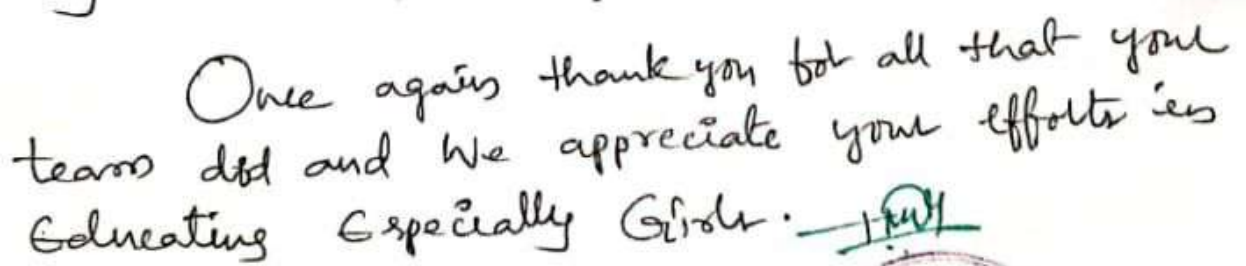 Once again thank you for all that your
team did and We appreciate your efforts in
Educating Especially Girls.